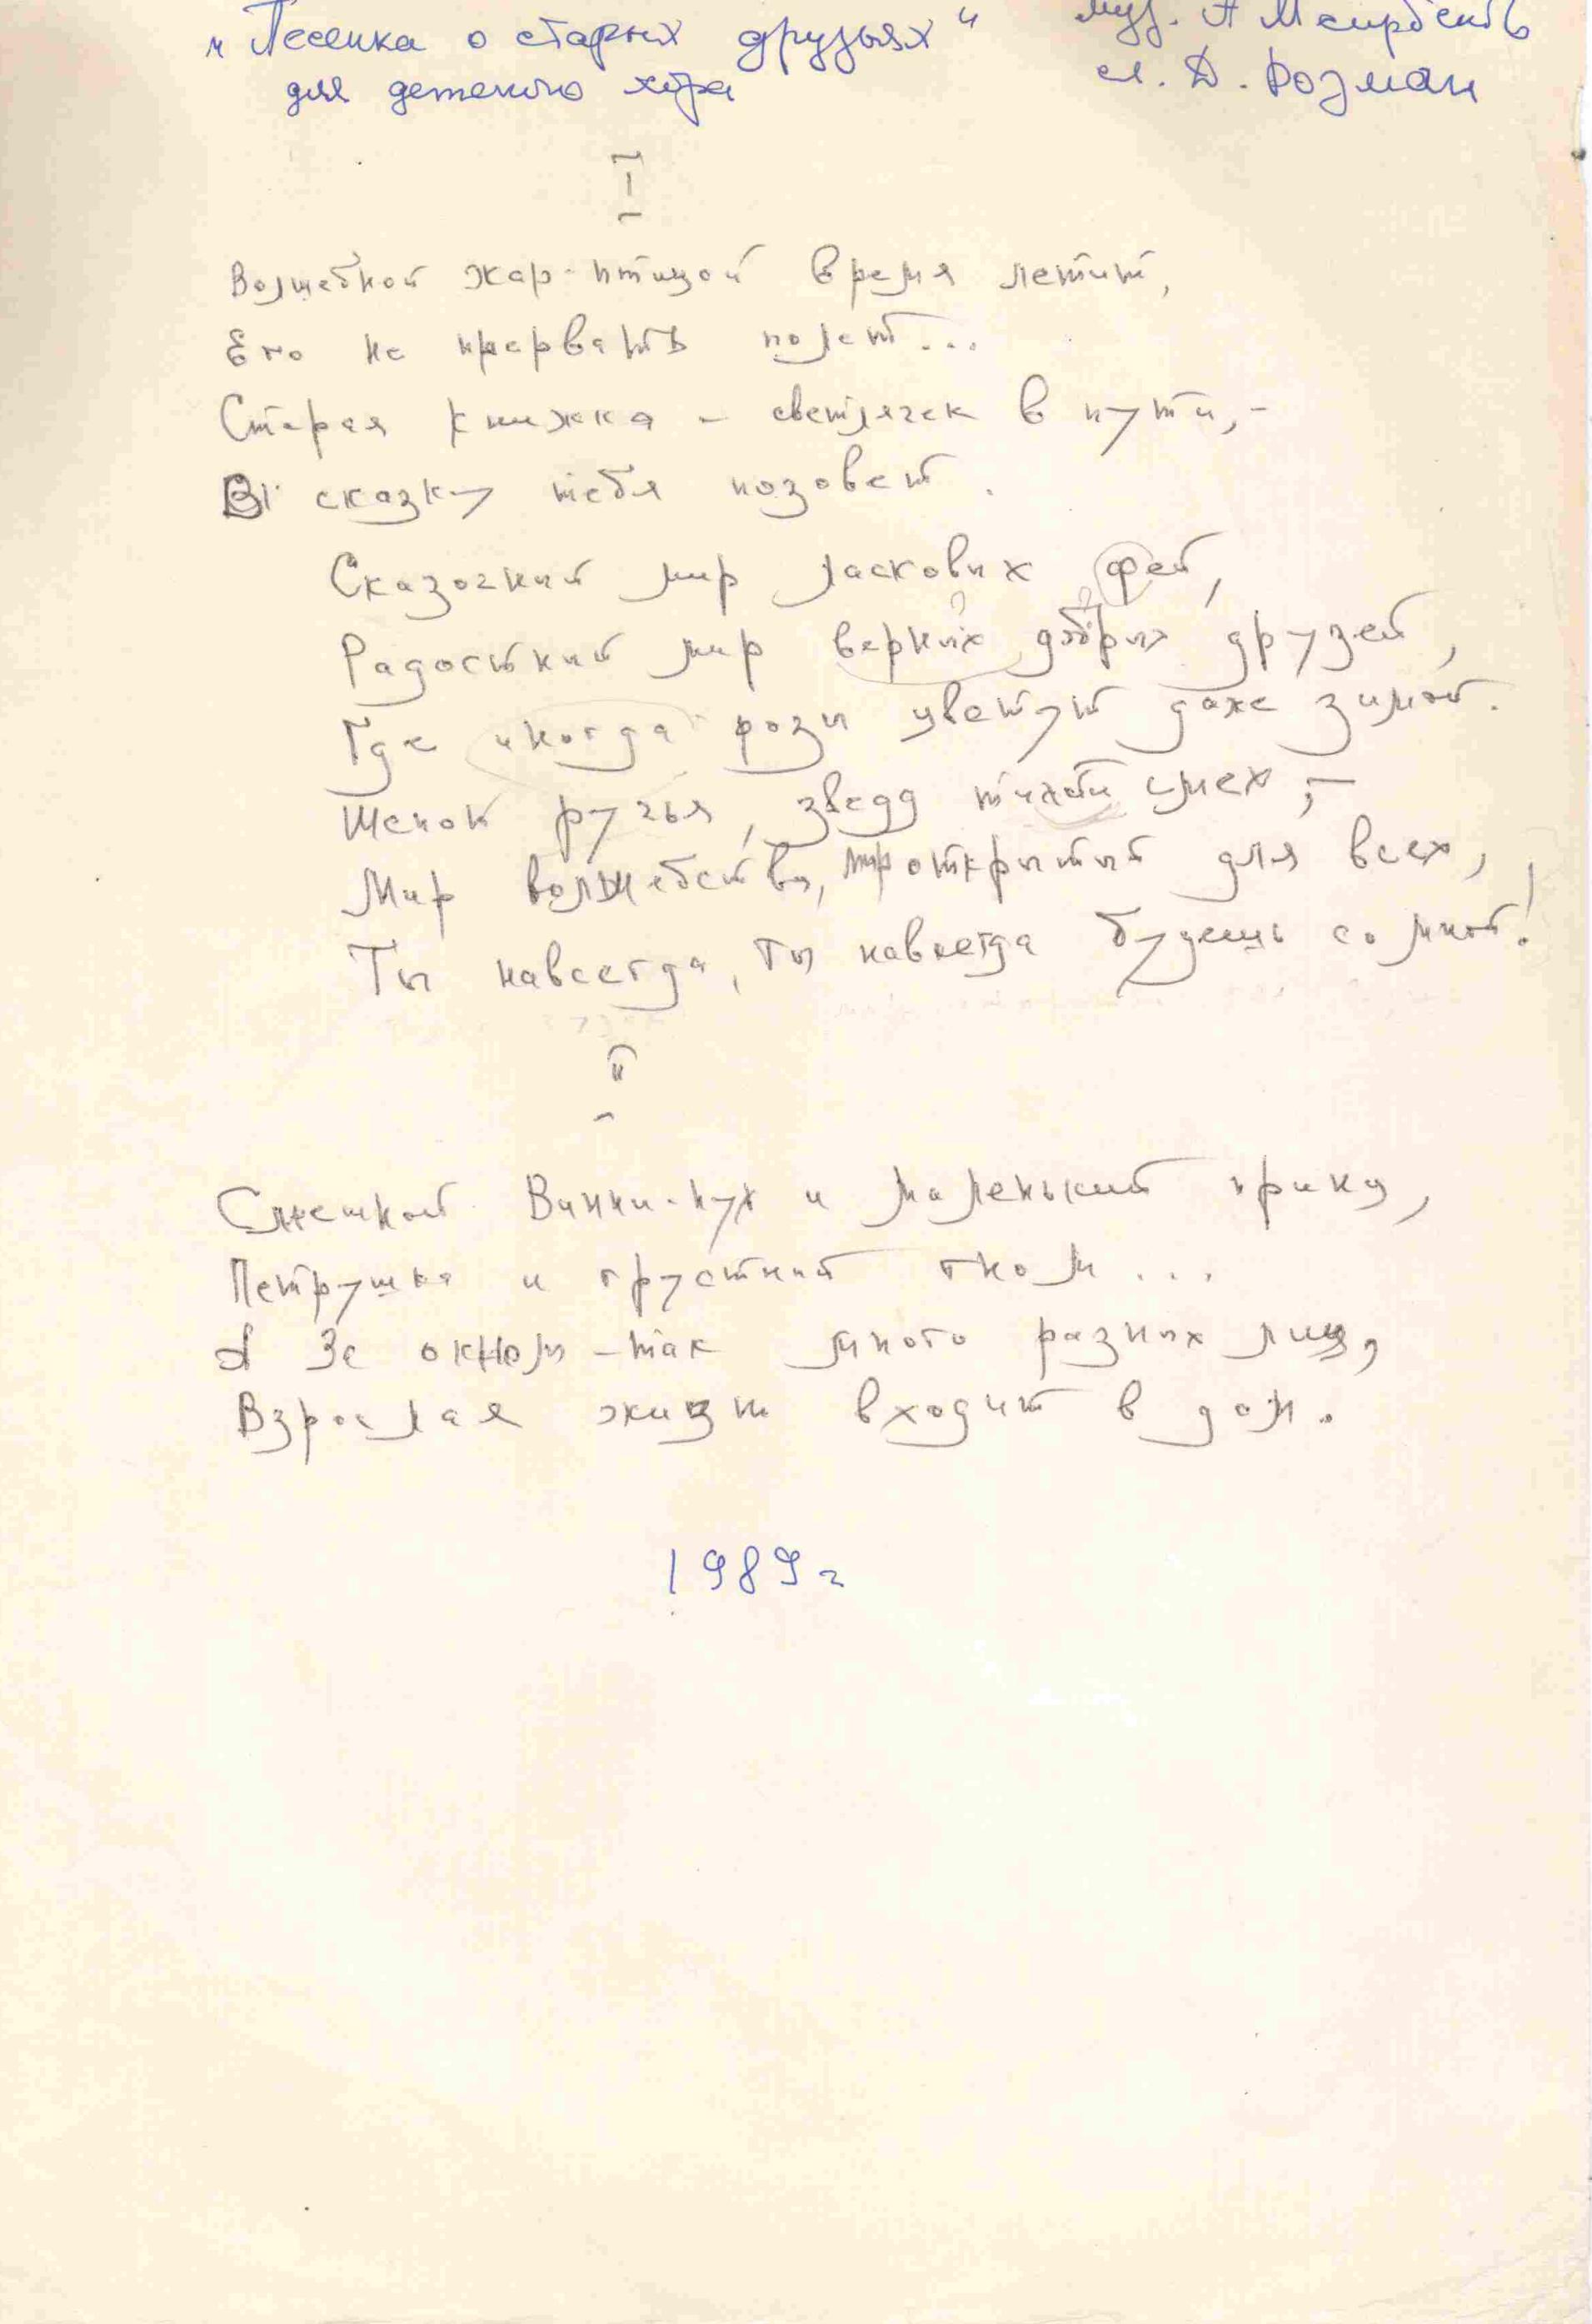 „Песенка о старых друзьях“ муз. А Меирбеков
для детского хора сл. Д. Розман
I
Волшебной жар-птицой время летит,
Его не прервать полет...
Старая книжка – светлячек в пути,-
В сказку тебя позовет.
Сказочный мир ласковых фей,
Радостный мир верных добрых друзей,
Где иногда розы цветут даже зимой.
Шепот ручья, звезд тихий смех,–
Мир волшебства, мир открытый для всех,
Ты навсегда, ты навсегда будешь со мной!
II
Смешной Винни-пух и маленький принц,
Петрушка и грустный гном...
А за окном – так много разных лиц,
Взрослая жизнь входит в дом.
1989г